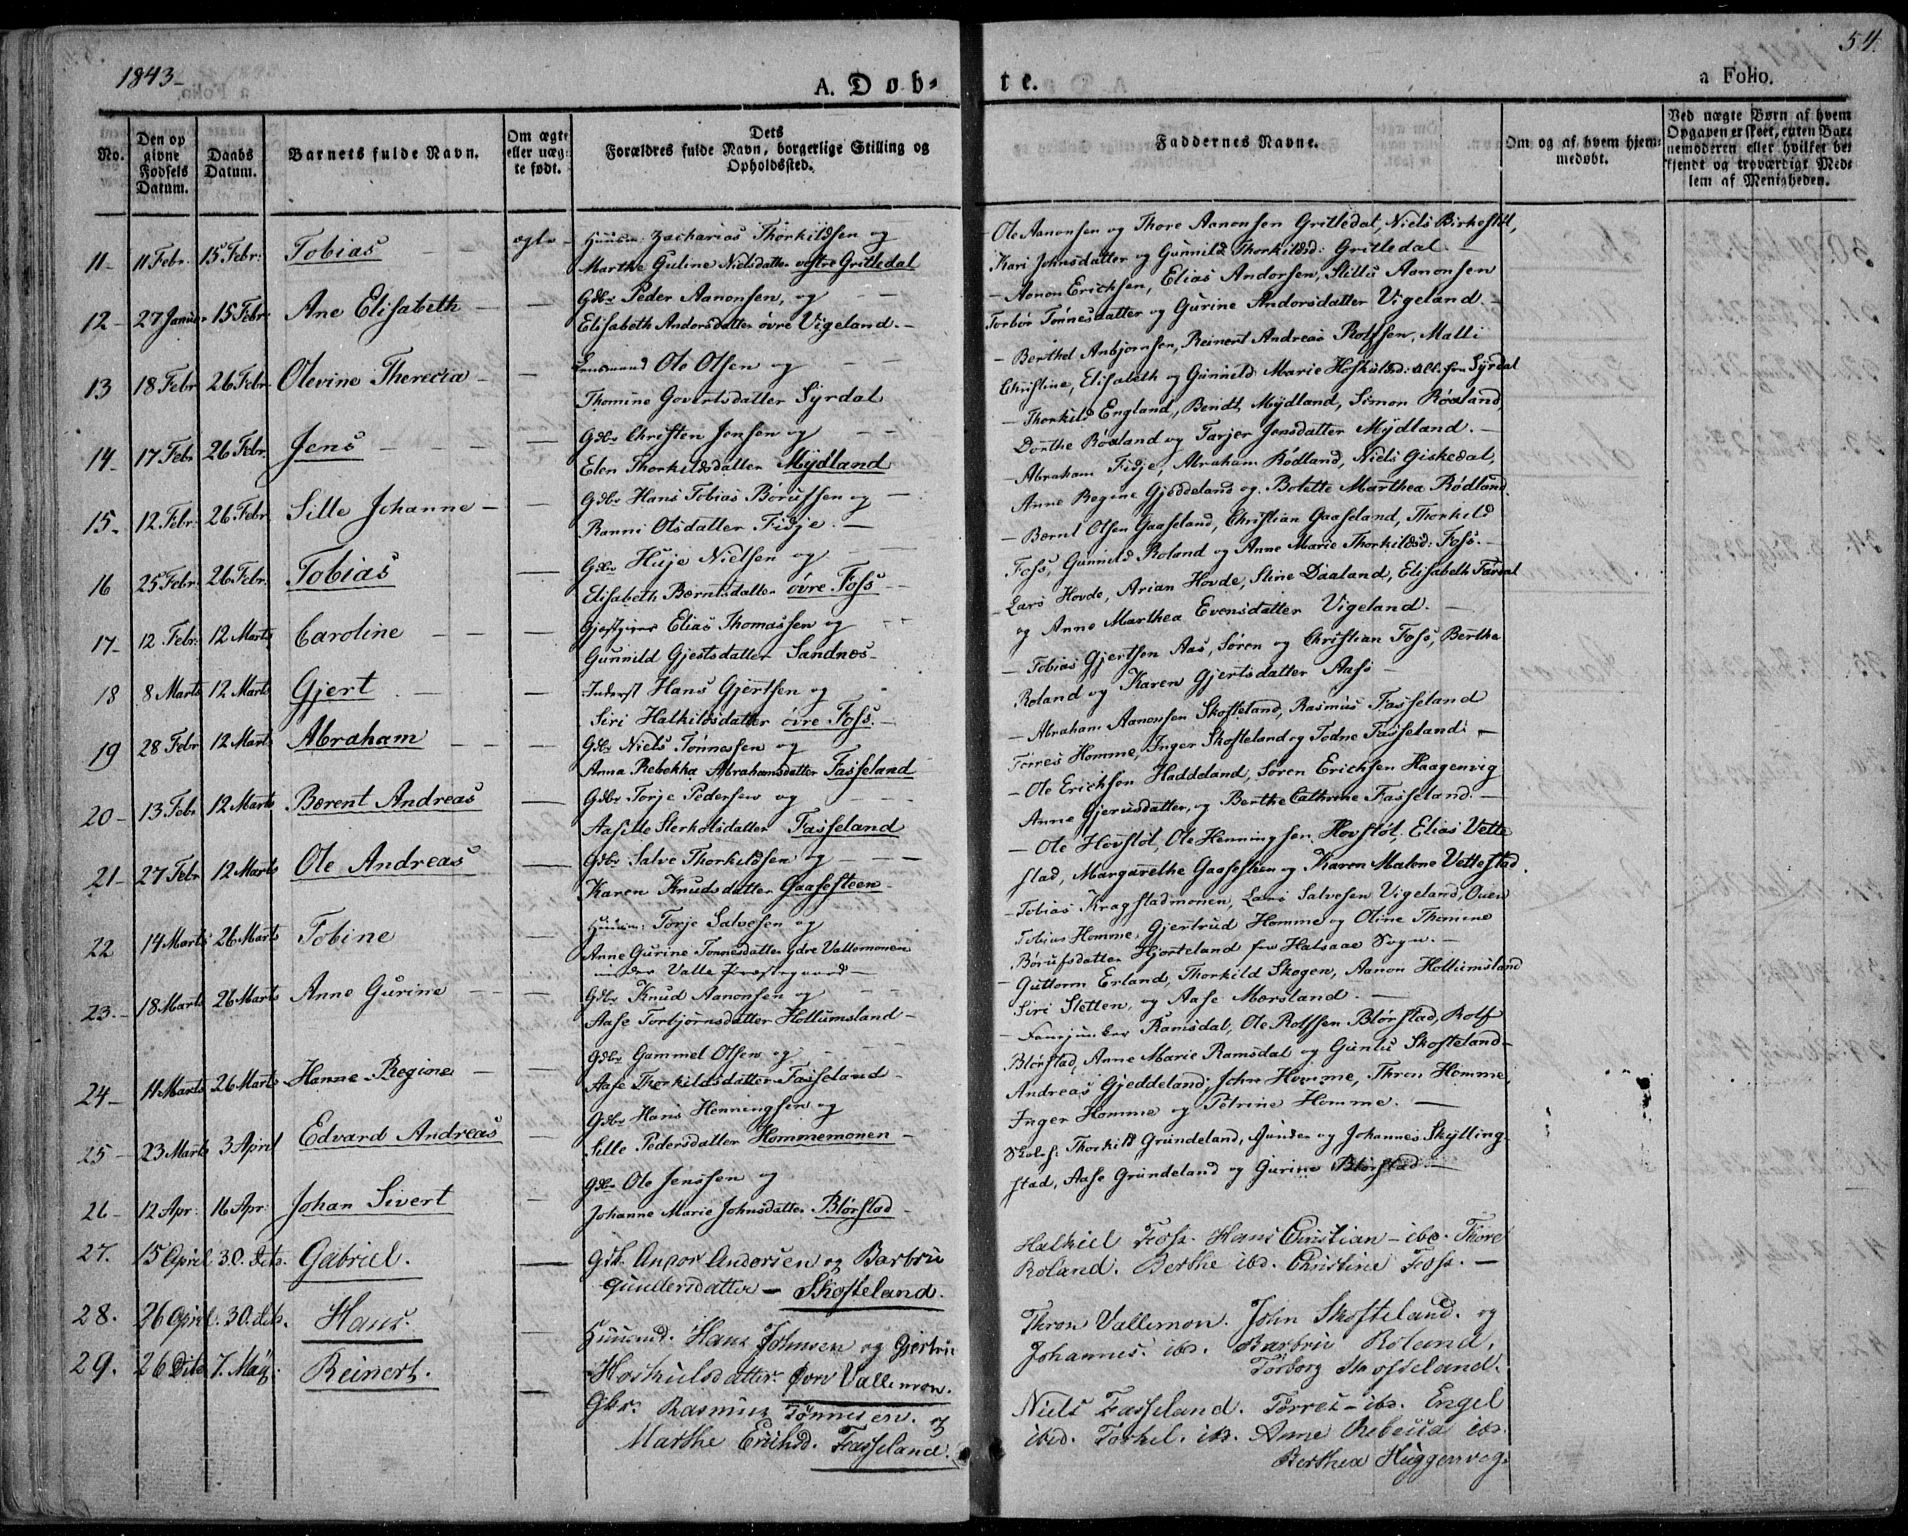 1843 –
A. Døb-
te.
a Folio.
54.
No.
Den op
givne
Fødsels
Datum.
Daabs
Datum.
Barnets fulde Navn.
Om ægte
eller uæg-
te født.
Dets
Forældres fulde Navn, borgerlige Stilling og
Opholdssted.
Faddernes Navne.
Om og af hvem hjem-
medøbt.
Ved uægte Børn af hvem
Opgaven er skeet, enten Bar-
nemoderen eller hvilket be-
kjendt og troværdigt Med-
lem af Menigheden.
11 – 11 Febr. 15 Febr: Tobias – ægte – Huusm: Zacharias Thorkildsen og
Marthe Guline Nielsdatter vestre Gritledal
– Ole Aanonsen og Thore Aanonsen Gritledal, Niels Birkestøl,
Kari Johnsdatter og Gunnild Thorkildsd: Gritledal –
12 – 27 Januar 15 Febr: Ane Elisabeth – Gdbr Peder Aanonsen, og
Elisabeth Andorsdatter øvre Vigeland. –
– Aanon Erichsen, Elias Andorsen, Sille Aanonsen
Torbør Tønnesdatter og Gurine Andorsdatter Vigeland –
13 18 Febr 26 Febr. Olevine Therecia – Ole Olsen og
Thomine Govertsdatter Syrdal
– Berthel Anbjørnsen, Reinert Andreas Rolfsen, Malli
Christine, Elisabeth og Gunneld Marie Hoskuldsd: alle fra Syrdal
14 – 17 Febr 26 Febr. Jens – Gdbr Christen Jensen og
Elen Thorkildsdatter Mydland
– Thorkild England, Bendt Mydland, Simon Røaland,
Dorthe Røaland og Tarjer Jensdatter Mydland. –
15 – 12 Febr. 26 Febr Sille Johanne – Gdbr Hans Tobias Børufsen og –
Ranni Olsdatter Fidje. –
– Abraham Fidje, Abraham Rødland, Niels Giskedal,
Anne Regine Gjeddeland og Bolette Marthea Rødland
16 25 Febr. 26 Febr. Tobias Gdbr Huje Nielsen og –
Elisabeth Berntsdatter øvre Foss –
– Bernt Olsen Gaaseland, Christian Gaaseland, Thorkild
Foss, Gunnild Roland og Anne Marie Thorkildsd: Foss. –
17 – 12 Febr. 12 Marts Caroline – Gjestgiver Elias Thomassen og
Gunnild Gjestsdatter Sandnes –
– Lars Hovde, Arian Hovde, Stine Daaland, Elisabeth Fardal
og Anne Marthea Evensdatter Vigeland. –
18 8 Marts 12 Marts Gjert. – Inderst Hans Gjertsen og
Siri Halkildsdatter øvre Foss. –
– Tobias Gjertsen Aas, Søren og Christian Foss, Berthe
Roland og Karen Gjertsdatter Aass –
19 28 Febr 12 Marts Abraham – Gdbr Niels Tønnessen og
Anna Rebekka Abrahamsdatter Fasseland
– Abraham Aanonsen Skofteland, Rasmus Fasseland
Torres Homme, Inger Skofteland og Todne Fasseland –
20 – 13 Febr 12 Marts Bærent Andreas – Gdbr Torje Pedersen og
Aasille Sterkolsdatter Fasseland
– Ole Erichsen Haddeland, Søren Erichsen Haagenvig
Anne Gjerusdatter, og Berthe Cathrine Fasseland. –
21 – 27 Febr 12 Marts Ole Andreas – Gdbr Salve Thorkildsen og
Karen Knudsdatter Gaasesteen –
– Ole Hovstøl, Ole Henningsen Hovstøl, Elias Vette
stad, Margarethe Gaasesteen og Karen Malene Vettestad
22 14 Marts 26 Marts Tobine – Huusm: Torje Salvesen og
Anne Gurine Tønnesdatter ydre Vallemonen
under Valle Præstegaard –
– Tobias Kragstadmonen, Lars Salvesen Vigeland, Ouen
Tobias Homme, Gjertrud Homme og Oline Thomine
Børufsdatter Hjorteland fra Halsaae Sogn. –
23. – 18 Marts 26 Marts Anne Gurine – Gdbr Knud Aanonsen og
Aase Torbjørnsdatter Hollumsland –
– Guttorm Erland, Thorkild Skogen, Aanon Hollumsland
Siri Sletten, og Aase Mærsland. –
24 – 11 Marts 26 Marts Hanne Regine – Gdbr Gammel Olsen og
Aase Thorkildsdatter Fasseland –
– Ramsdal, Ole Rolfsen Blørstad, Rolf
Blørstad, Anne Marie Ramsdal og Guntu Skofteland –
25 – 23 Marts 3 April Edvard Andreas – Gdbr Hans Henningsen og
Sille Pedersdatter Hommemonen –
Andreas Gjeddeland, John Homme, Thron Homme,
Inger Homme og Petrine Homme. –
26 – 12 Apr: 16 Apr: Johan Sivert – Gdbr Ole Jenssen og
Johanne Marie Johnsdatter Blørstad –
Skolef: Thorkild Grundeland, Gunder og Johannes Skylling
stad, Aase Grundeland og Gurine Blørstad –
27. 15 April 30. dito. Gabriel. – Gbr. Andor Andorsen og Barbru
Gundersdatter – Skofteland.
Halkiel Foss. Hans Christian – ibd. Thore
Roland. Berthe ibd. Christine Foss. –
28. 26 April. 30. dito. Hans. Huusmd. Hans Johnsen og Gjertru
Hoskulsdatter. Øvre Vallemon.
Thron Vallemon. John Skofteland. og
Johannes. ibd. Barbru Roland.
Torborg Skofteland.
29. 26 Dito 7. Maj. Reinert. – Gbr. Rasmus Tønnesen. og
Marthe Erichsd. Fasseland.
Niels Fasseland. Torres – ibd. Engel
ibed. Torkel. ib. Anne Rebecca ibd.
Berthea Huggenvog.